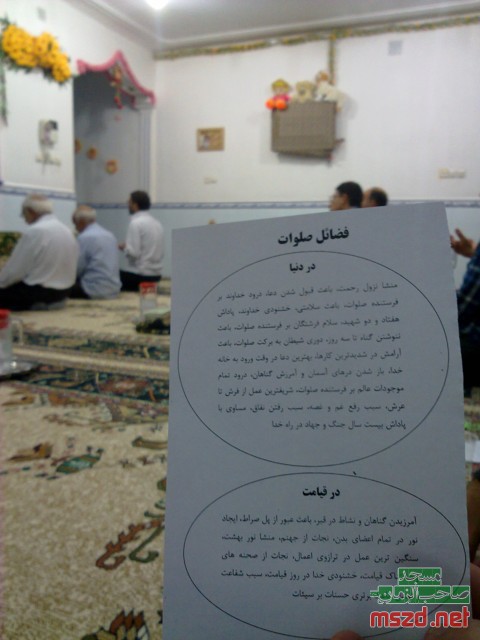 فضائل صلوات
در دنیا
منشا نزول رحمت، باعث قبول شدن دعا، درود خداوند بر
فرستنده صلوات، باعث سلامتی، خشنودی خداوند، پاداش
هفتاد و دو شهید، سلام فرشتگان بر فرستنده صلوات، باعث
ننوشتن گناه تا سه روز، دوری شیطان به برکت صلوات، باعث
آرامش در شدیدترین کارها، بهترین دعا در وقت ورود به خانه
خدا، باز شدن درهای آسمان و آمرزش گناهان، درود تمام
موجودات عالم بر فرستنده صلوات، شریفترین عمل از فرش تا
عرش، سبب رفع غم و غصه، سبب رفتن نفاق، مساوی با
پاداش بیست سال جنگ و جهاد در راه خدا
در قیامت
آمرزیدن گناهان و نشاط در قبر، باعث عبور از پل صراط، ایجاد
نور در تمام اعضای بدن، نجات از جهنم، منشا نور بهشت،
سنگین ترین عمل در ترازوی اعمال، نجات از صحنه های
قیامت، خشنودی خدا در روز قیامت، سبب شفاعت
برتری حسنات بر سیئات
مسجد
صاحب الزمان
mszd.net